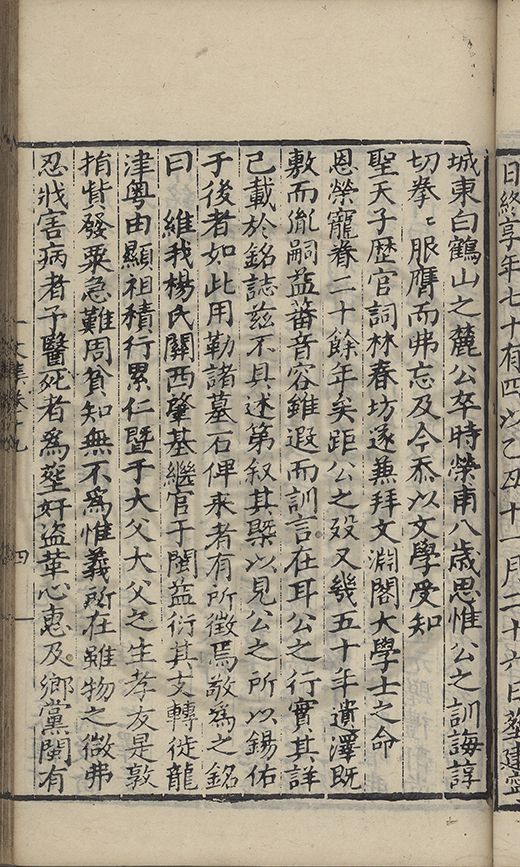 日終享年七十有四以乙丑十一月二十六日塟建寧
城東白鶴山之麓公卒時榮甫八歲思惟公之訓誨諄
切拳〻服膺而弗忘及今忝以文學受知
聖天子歷官詞林春坊遂兼拜文淵閣大學士之命
恩榮寵眷二十餘年矣距公之歿又幾五十年遺澤旣
敷而胤嗣益蕃音容雖遐而訓言在耳公之行實其詳
已載於銘誌茲不具述第叙其槩以見公之所以錫佑
于後者如此用勒諸墓石俾来者有所徵焉敬爲之銘
曰　維我楊氏關西肇基繼官于閩益衍其支轉徙龍
津粤由顯祖積行累仁曁于大父大父之生孝友是敦
指眥發粟急難周貧知無不爲惟義所在雖物之微弗
忍戕害病者予醫死者爲塟奸盜革心惠及鄉黨閩有
文集卷十九
四